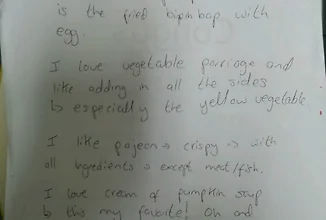 is the fried bipimbap with
egg.
I love vegetable porriage and
like adding in all the sides
↳ especially the yellow vegetable.
I like pajeon → crispy → with
all ingredients → except meat/fish.
I love cream of pumpkin soup
↳ this my favorite! Oh and